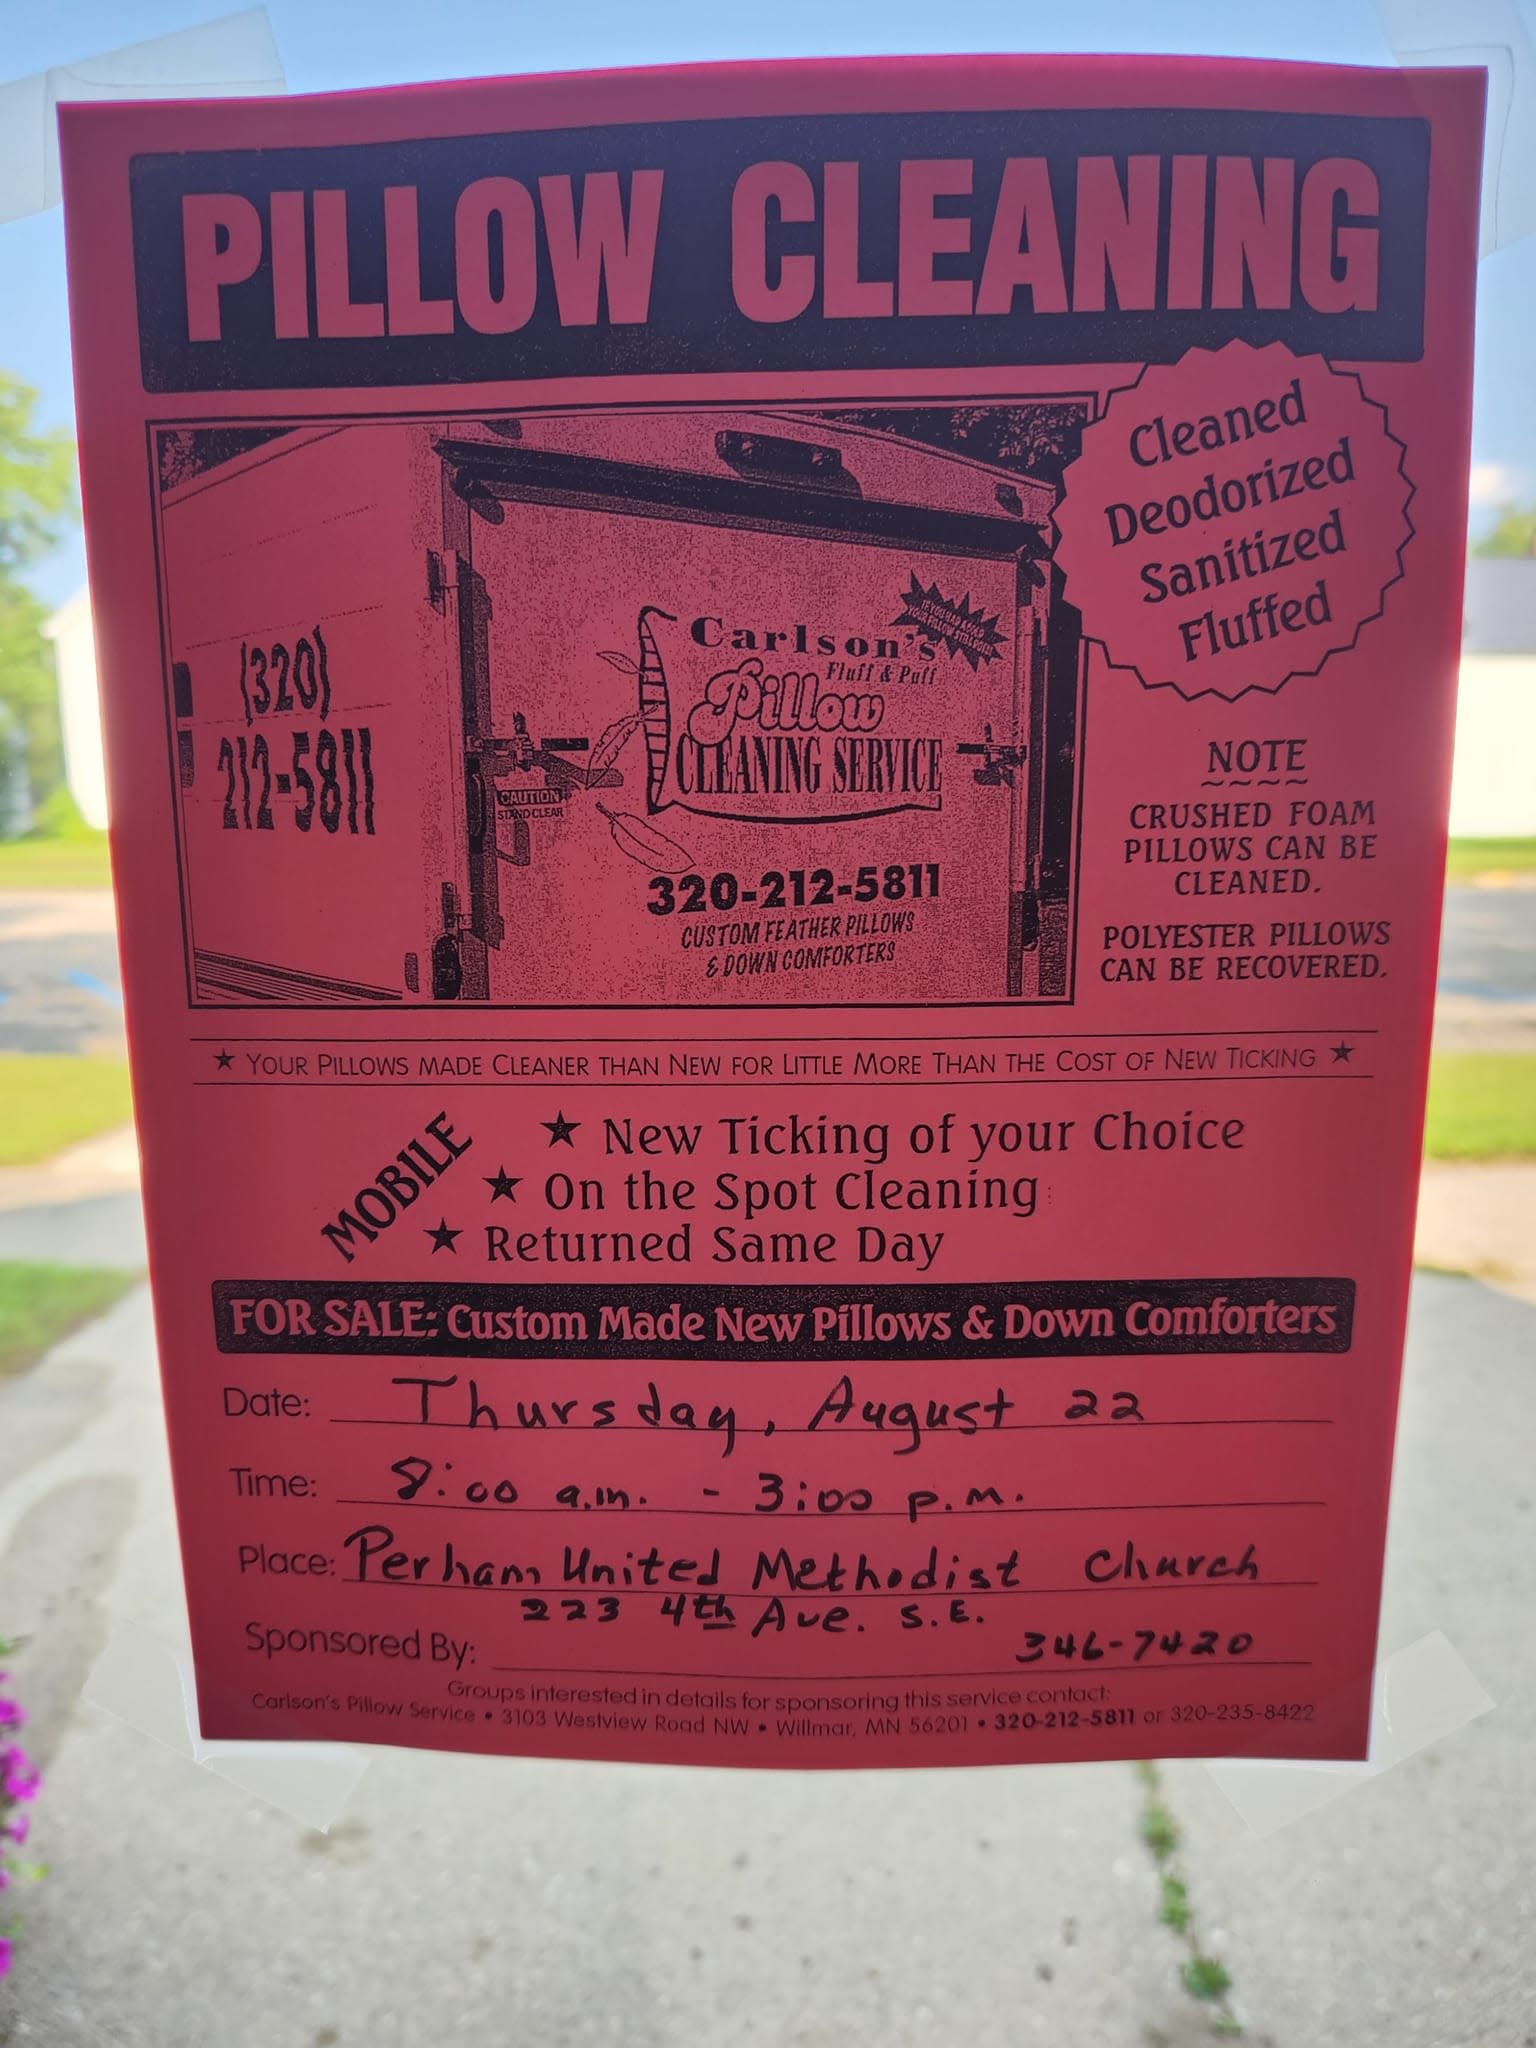 PILLOW CLEANING
Cleaned
Deodorized
Sanitized
Fluffed
(320)
212-5811
Carlson's
Fluff & Puff
Pillow
CLEANING SERVICE
CAUTION
STAND CLEAR
320-212-5811
CUSTOM FEATHER PILLOWS
& DOWN COMFORTERS
NOTE
CRUSHED FOAM
PILLOWS CAN BE
CLEANED.
POLYESTER PILLOWS
CAN BE RECOVERED.
★ YOUR PILLOWS MADE CLEANER THAN NEW FOR LITTLE MORE THAN THE COST OF NEW TICKING ★
MOBILE
★ New Ticking of your Choice
★ On the Spot Cleaning
★ Returned Same Day
FOR SALE: Custom Made New Pillows & Down Comforters
Date: Thursday, August 22
Time: 8:00 a.m. - 3:00 p.m.
Place: Perham United Methodist Church
223 4th Ave. S.E.
Sponsored By: 346-7420
Groups interested in details for sponsoring this service contact:
Carlson's Pillow Service • 3103 Westview Road NW • Willmar, MN 56201 • 320-212-5811 or 320-235-8422